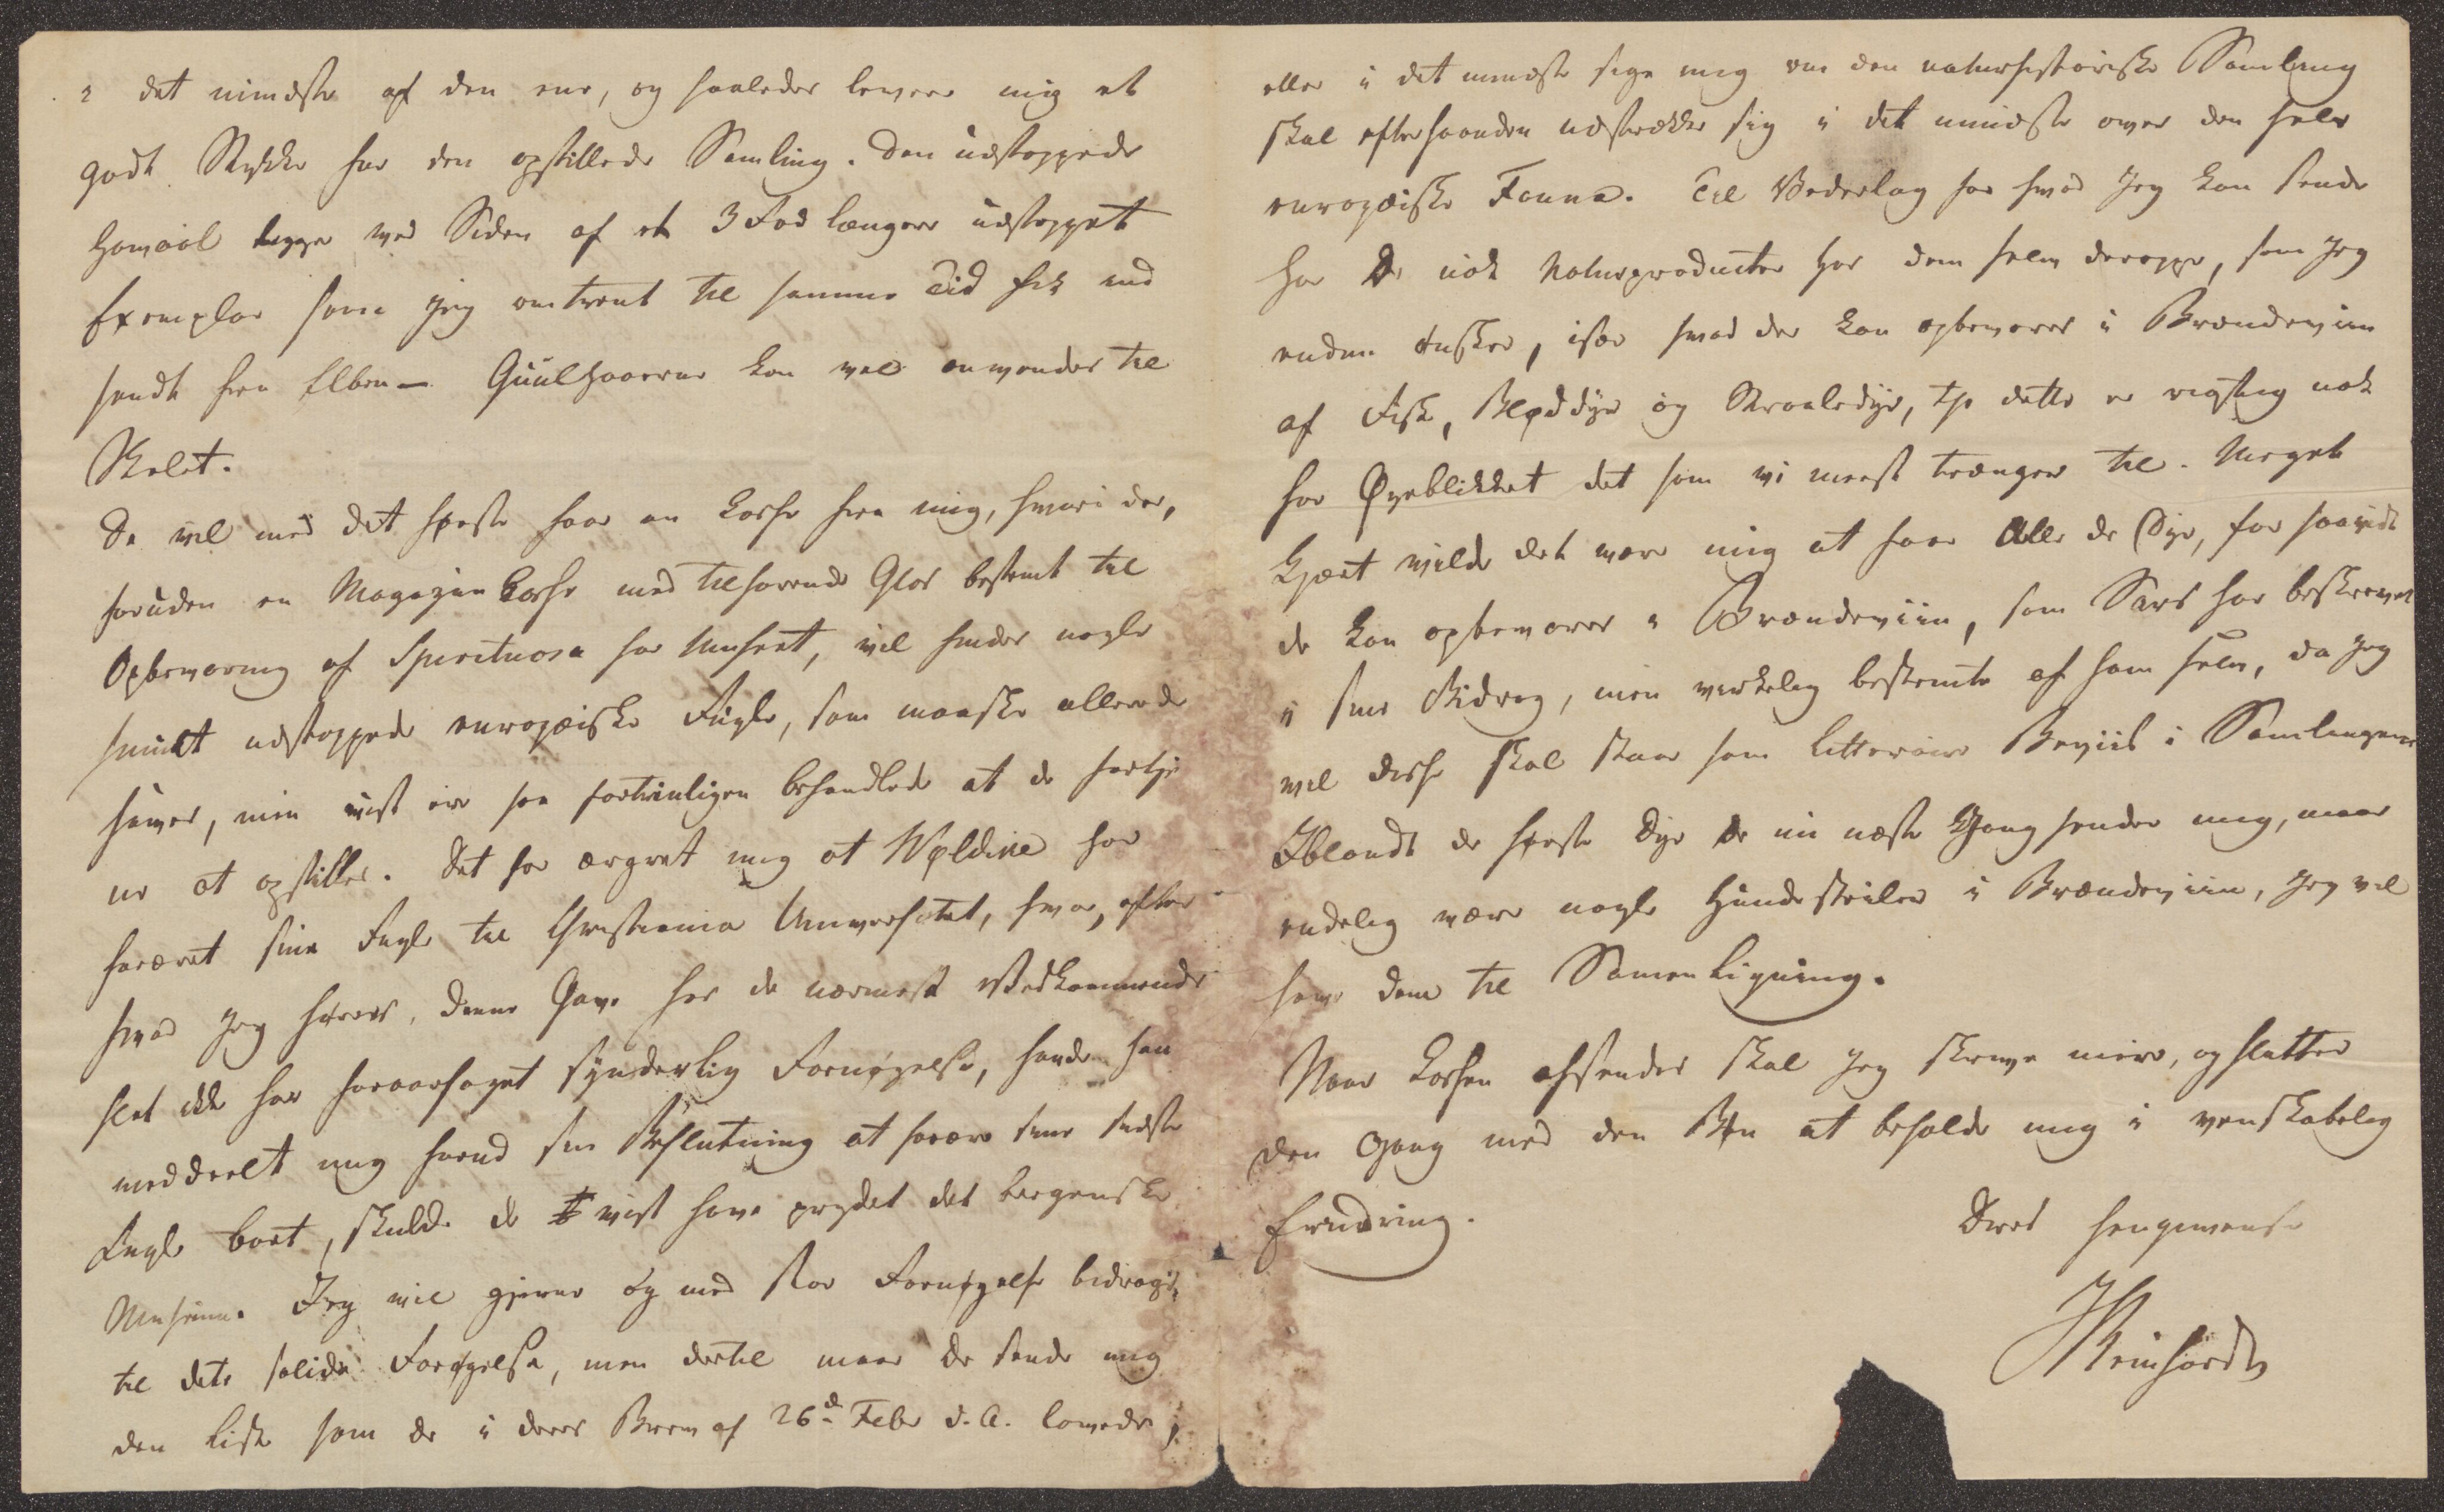 i det mindste af den ene, og saaledes levere mig et
godt Stykke for den opstillede Samling. Den udstoppede
Havaal ligger ved Siden af et 3 Fod længere udstoppet
Exemplar som jeg omtrent til samme Tid fik ind
sendt fra Elben – Guulhaaerne kan vel anvendes til
Skelet.
De vil med det første faae en Kasse fra mig, hvori der,
foruden en Magazin Kasse med tilhørende Glas bestemt til
Opbevaring af Spirituosa for Museet, vil findes nogle
smukt udstoppede europæiske Fugle, som maaske allerede
haves, men vist ere saa fortrinligen behandlede at de fortje
ne at opstilles. Det har ærgret mig at Woldike har
foræret sine Fugle til Christiania Universitet, hvor, efter
hvad Jeg hører, denne Gave hos de nærmest Vedkommende
slet ikke har foraarsaget synderlig Fornøjelse, havde han
meddeelt mig forud sin Beslutning at forære sine sidste
Fugle bort, skulde de vist have prydet det bergenske
Museum. Jeg vil gjerne og med stor Fornøjelse bidrage
til dets solide Forøgelse, men dertil maae De sende mig
den Liste som De i Deres Brev af 26d Febr d. A. lovede,
eller i det mindste sige mig om den naturhistoriske Samling
skal efterhaanden udstrække sig i det mindste over den hele
europæiske Fauna. Til Vederlag for hvad Jeg kan sende
har De nok Naturproducter hos dem selv deroppe, som Jeg
endnu ønsker, især hvad der kan opbevares i Brændeviin
af Fisk, Bløddyr og Straaledyr, thi dette er rigtig nok
for Øyeblikket det som vi meest trænger til. Meget
kjært vilde det være mig at faae Alle de Dyr, for saavidt
de kan opbevares i Brændeviin, som Sars har beskrevet
i sine Bidrag, men virkelig bestemte af ham selv, da Jeg
vel disse skal staae som litteraire Beviis i Samlingerne
Iblandt de første Dyr De nu næste Gang sender mig, maae
endelig være nogle Hundesteiler i Brændeviin, Jeg vil
have dem til Samenligning.
Naar Kassen afsendes skal jeg skrive mere, og slutter
den Gang med den Bøn at beholde mig i venskabelig
Erindring.
Deres hengivenste
JReinhardt